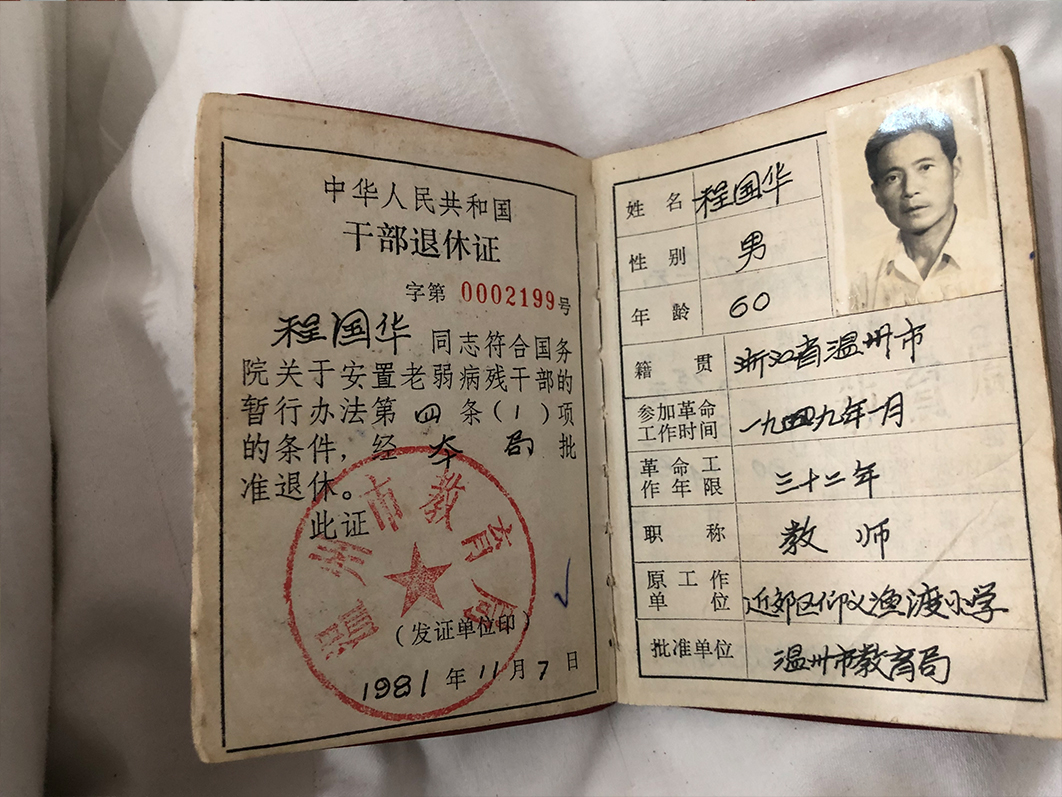 中华人民共和国
干部退休证
字第 0002199号
程国华 同志符合国务
院关于安置老弱病残干部的
暂行办法第 四 条（1）项
的条件，经 本 局 批
准退休。
此证
温州市教育局
（发证单位印）
1981 年 11 月 7 日
姓名 程国华
性别 男
年龄 60
籍贯 浙江省温州市
参加革命
工作时间 一九四九年一月
革命工
作年限 三十二年
职称 教师
原工作
单位 近郊区仰义渔渡小学
批准单位 温州市教育局